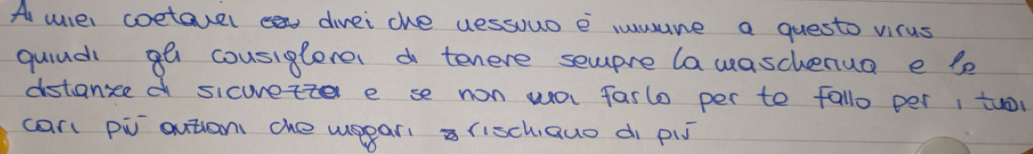 Ai miei coetanei direi che nessuno è immune a questo virus
quindi gli consiglerei di tenere sempre la mascherina e le
distanze di sicurezza e se non vuoi farlo per te fallo per i tuoi
cari più anziani che magari rischiano di più